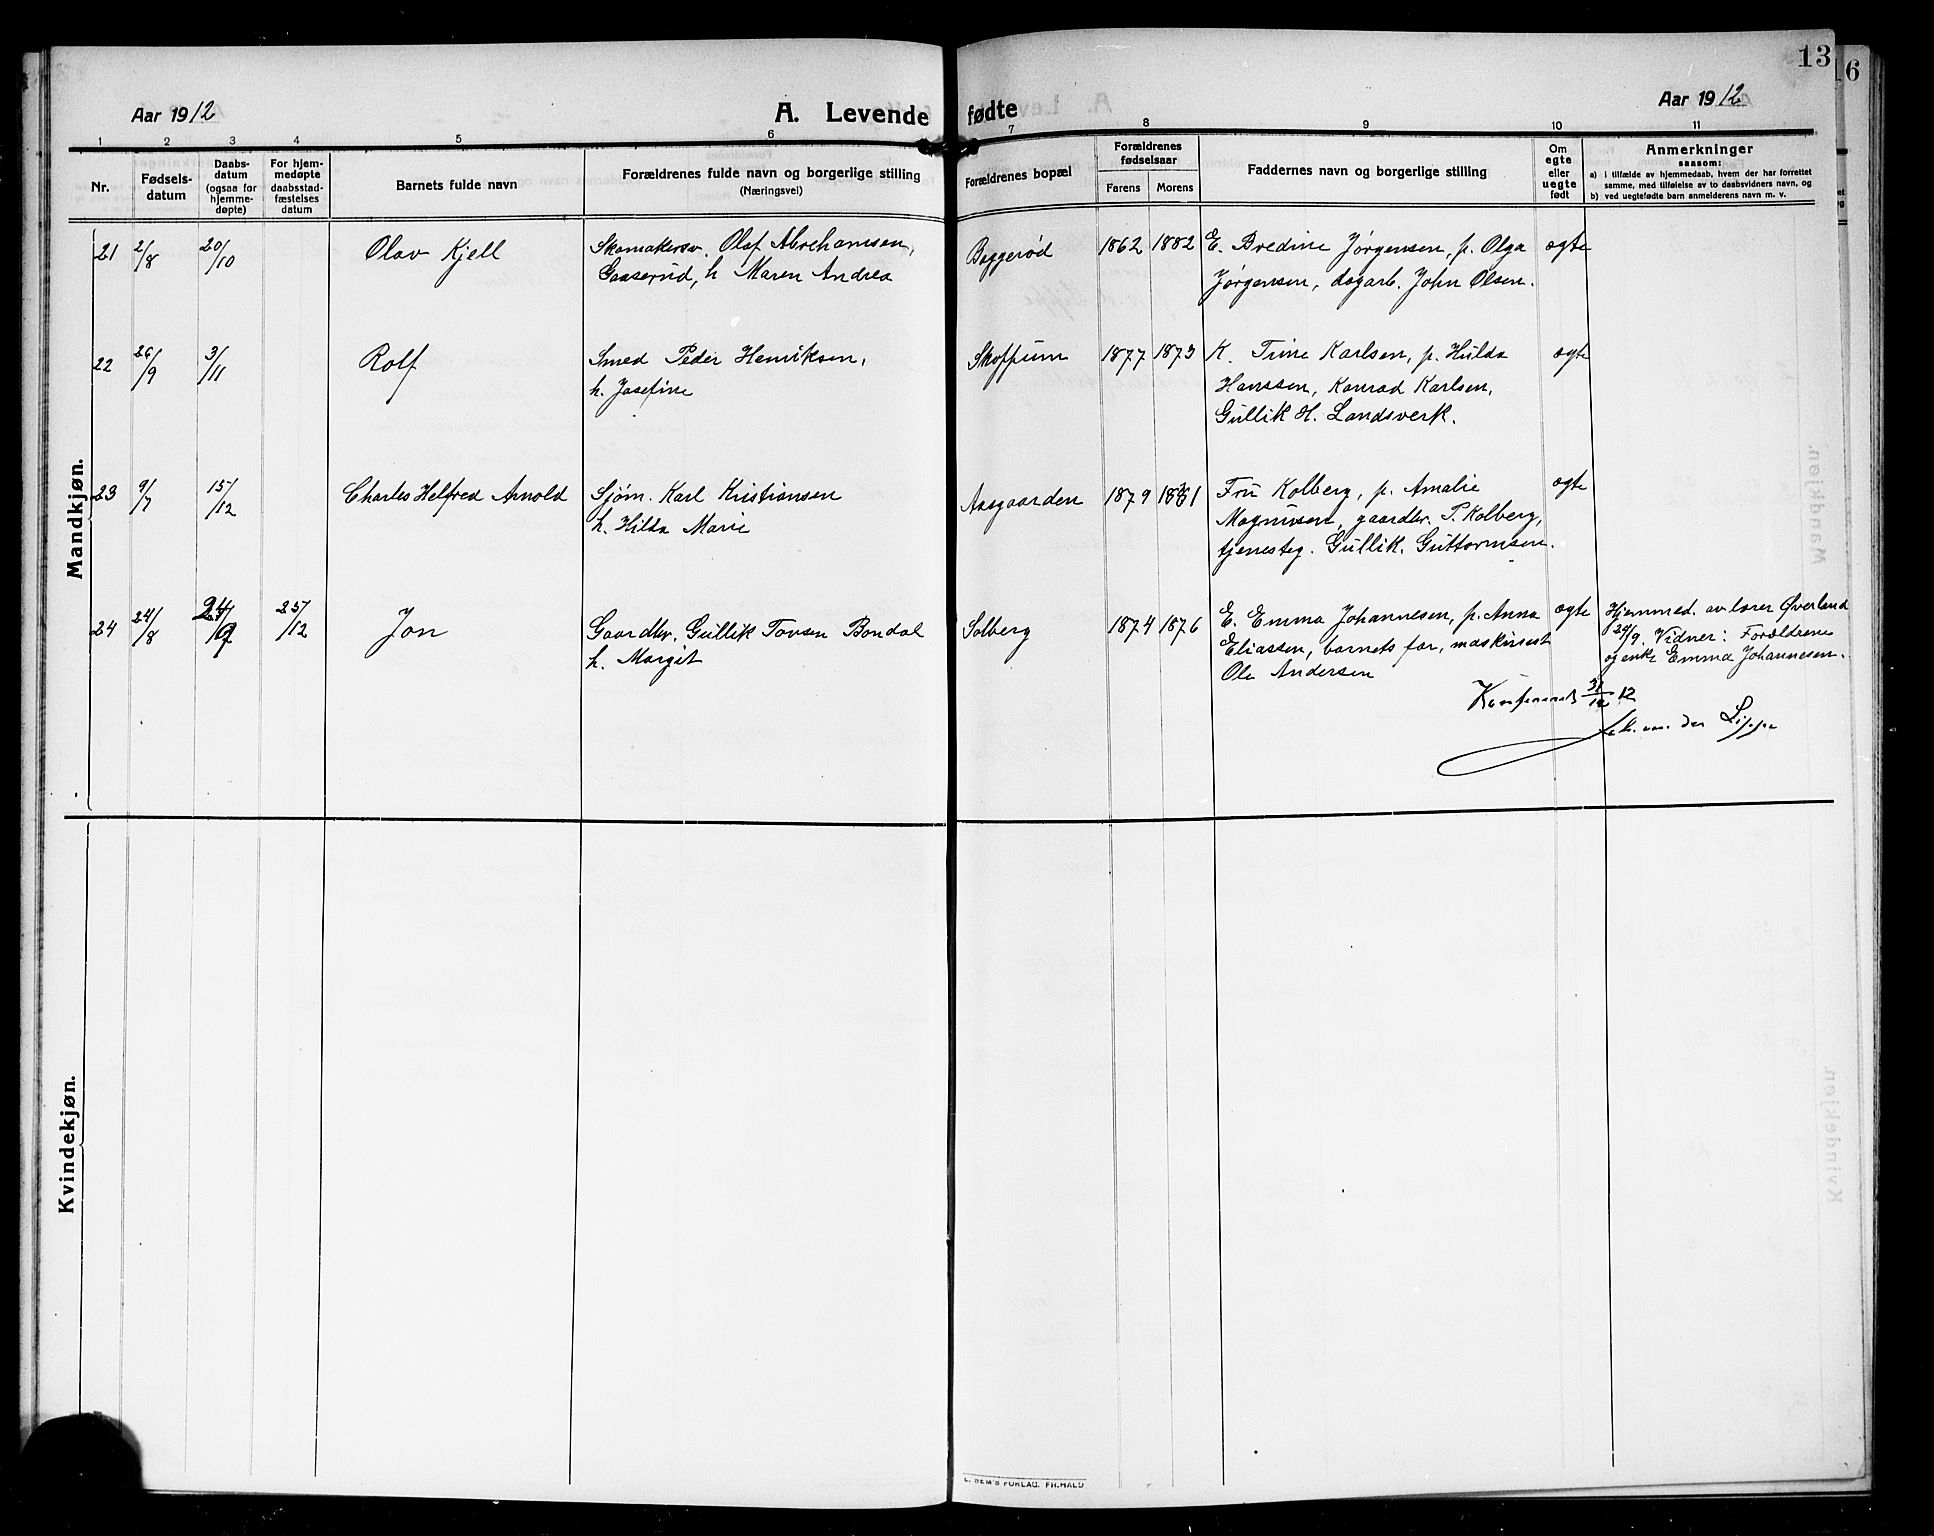 13
16
Aar 1912
A. Levende fødte
Aar 1912
1 2 3 4 5 6 7 8 9 10 11
Nr.
Fødsels-
datum
Daabs-
datum
(ogsaa for
hjemme-
døpte)
For hjem-
medøpte
daabsstad-
fæstelses
datum
Barnets fulde navn
Forældrenes fulde navn og borgerlige stilling
(Næringsvei)
Forældrenes bopæl
Forældrenes
fødselsaar
Farens Morens
Faddernes navn og borgerlige stilling
Om
egte
eller
uegte
født
Anmerkninger
saasom:
a) i tilfælde av hjemmedaab, hvem der har forrettet
samme, med tilføielse av to daabsvidners navn, og
b) ved uegtefødte barn anmelderens navn m. v.
Mandkjøn.
21 2/8 20/10 Olav Kjell Skomakersv. Olaf Abrehamsen, Baggerød 1862 1882 E. Bredine Jørgensen, p. Olga ægte
Gaaserud, h Maren Andrea Jørgensen, dagarb. John Olsen.
22 26/9 3/11 Rolf Smed Peder Henriksen, Skoppum 1877 1873 K. Trine Karlsen, p. Hulda ægte
h. Josefine Hanssen, Konrad Karlsen,
Gullik H. Landsverk.
23 9/7 15/12 Charles Helfred Arnold Sjøm. Karl Kristiansen Aasgaarden 1879 1881 Fru Kolberg, p. Amalie ægte
h. Hilda Marie Magnussen, gaardbr. P. Kolberg,
tjenesteg. Gullik. Guttormsen.
24 24/8 24/9 25/12 Jon Gaardbr. Gullik Tovsen Bondal Solberg 1874 1876 E. Emma Johannesen, p. Anna ægte Hjemmed. av lærer Øverland
h. Margit Eliassen, barnets far, maskinist 24/9. Vidner: Forældrene
Ole Andersen og enke Emma Johannesen.
Konfereret 31/12 12
van der Lippe
Kvindekjøn.
E. SEM'S FORLAG, FR.HALD